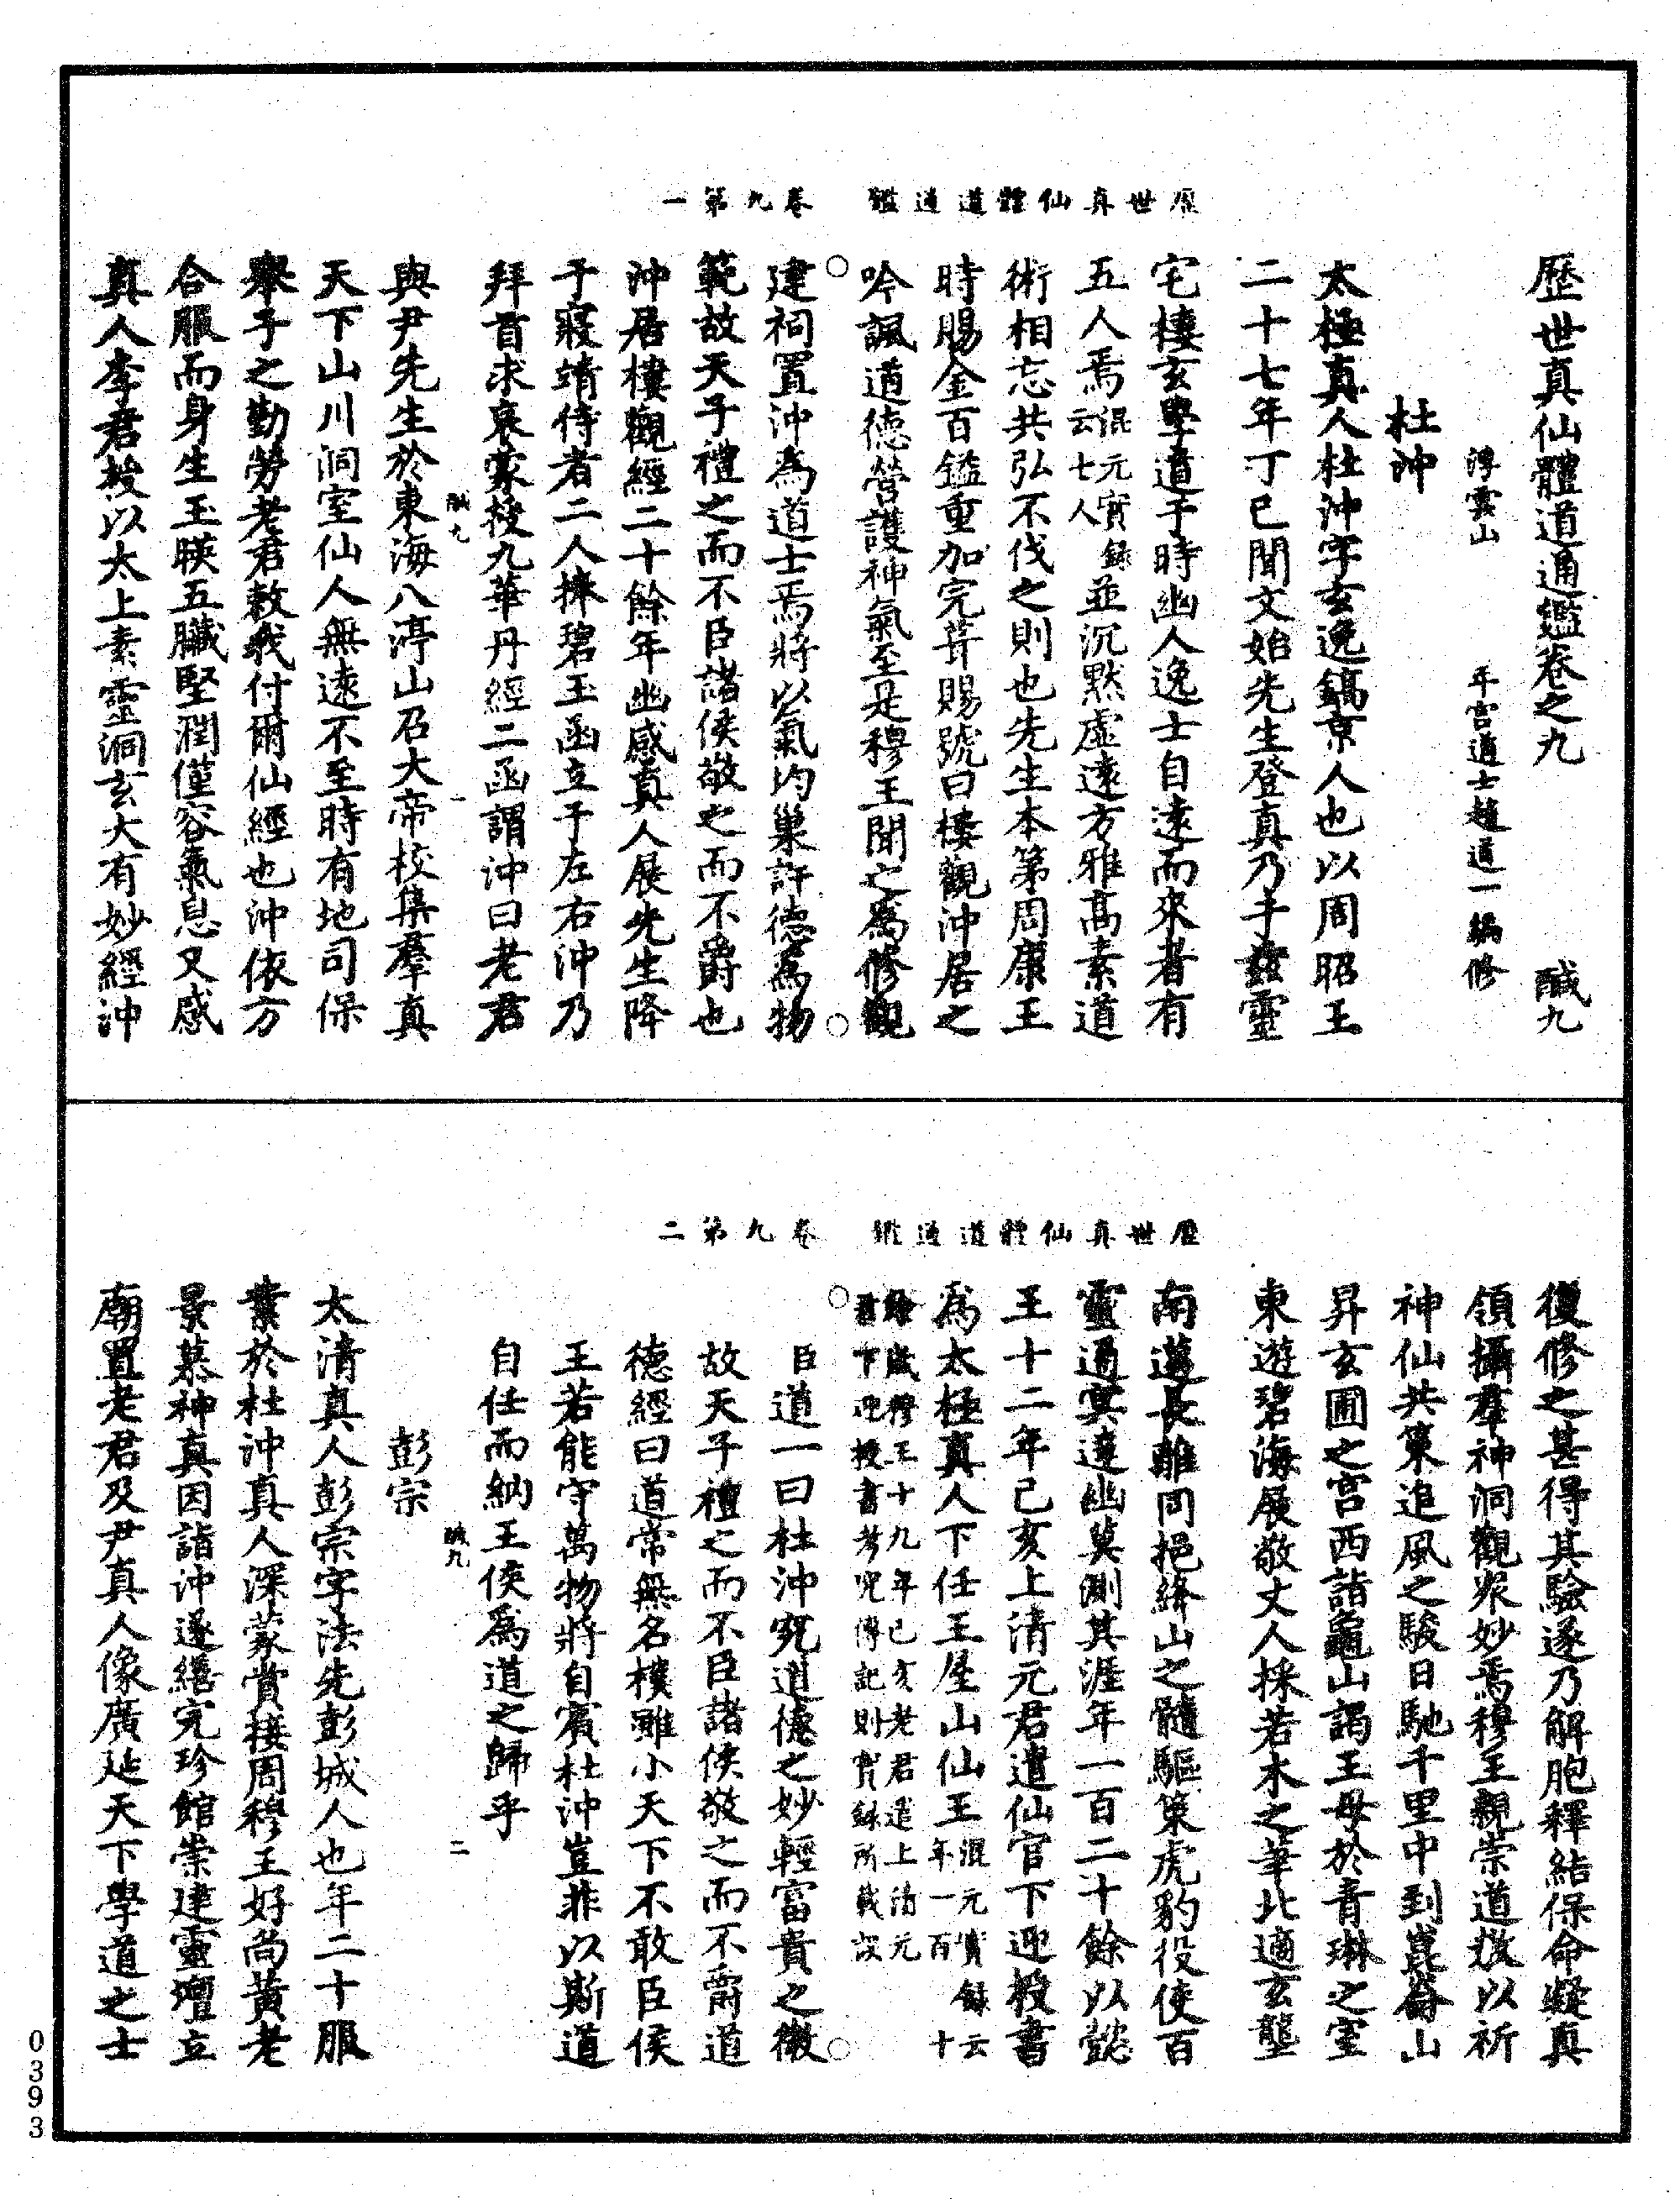 歷世真仙體道通鑑卷之九 醎九
浮雲山 年宮道士趙道一編修
杜沖
太極真人杜沖字玄逸鎬京人也以周昭王
二十七年丁巳聞文始先生登真乃于兹靈
宅棲玄學道于時幽人逸士自遠而來者有
五人焉混元實錄云七人並沉默虛遠方雅高素道
術相忘共弘不伐之則也先生本第周康王
時賜金百鎰重加完葺賜號曰樓觀沖居之
吟諷道德營護神氣至是穆王聞之為修觀
歷世真仙體道通鑑 卷九第一
建祠置沖為道士焉將以氣均巢許德為物
範故天子禮之而不臣諸侯敬之而不爵也
沖居樓觀經二十餘年幽感真人展先生降
于寢靖侍者二人捧碧玉函立于左右沖乃
拜首求哀蒙授九華丹經二函謂沖曰老君
醎九 一
與尹先生於東海八渟山召大帝校集羣真
天下山川洞室仙人無遠不至時有地司保
舉子之勤勞老君敕我付爾仙經也沖依方
合服而身生玉暎五臟堅潤僅容氣息又感
真人李君授以太上素靈洞玄大有妙經沖
復修之甚得其驗遂乃解胞釋結保命凝真
領攝羣神洞觀眾妙焉穆王親崇道教以祈
神仙共策追風之駿日馳千里中到崑崙山
昇玄圃之宮西詣龜山謁王母於青琳之室
東遊碧海展敬丈人採若木之華北適玄壟
南邁長離同挹絳山之髓驅策虎豹役使百
靈通冥達幽莫測其涯年一百二十餘以懿
王十二年己亥上清元君遣仙官下迎授書
為太極真人下任王屋山仙王混元實錄云年一百十
餘歲穆王十九年己亥老君遣上清元君下迎授書考咒傳記則實錄所載誤
歷世真仙體道通鑑 卷九第二
臣道一曰杜沖究道德之妙輕富貴之徵
故天子禮之而不臣諸侯敬之而不爵道
德經曰道常無名樸雖小天下不敢臣侯
王若能守萬物將自賓杜沖豈非以斯道
自任而納王侯為道之歸乎
醎九 二
彭宗
太清真人彭宗字法先彭城人也年二十服
業於杜沖真人深蒙賞接周穆王好尚黃老
景慕神真因詣沖遂繕完珍館崇建靈壇立
廟置老君及尹真人像廣延天下學道之士
0393